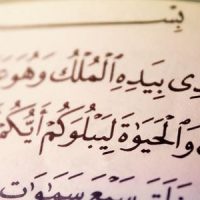 بِسْـ
ـذِى بِيَدِهِ ٱلْمُلْكُ وَهُوَ
وَٱلْحَيَوٰةَ لِيَبْلُوَكُمْ أَيُّكُمْ
خَلَقَ سَبْعَ سَمَٰوَٰتٍ